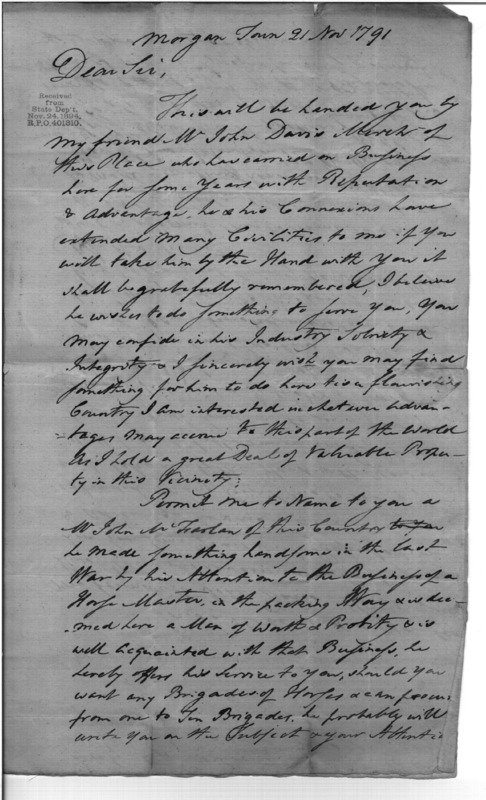 Morgan Town 21 Nov 1791
Dear Sir,
Received
from
State Dep't.
Nov. 24, 1894,
R.P.O. 401310.
This will be handed you by
my friend Mr John Davis Mercht of
this Place who has carried on Business
here for some Years with Reputation
& Advantage, he & his Connexions have
extended Many Civilities to me if You
will take him by the Hand with you it
shall be gratefully remembered, I believe
he wishes to do something to serve You, You
may confide in his Industry Sobriety &
Integrity & I sincerely wish you may find
something for him to do here tis a flourishing
Country I am interested in whatever Advan-
-tages may accrue to this part of the World
As I hold a great Deal of Valuable Proper-
ty in this Vicinity:
Permit me to Name to you a
Mr John McFarlan of this Country
he made something handsome in the last
War by his Attention to the Business of a
Horse Master, in the packing Way & is dee-
-med here a Man of Worth & Probity & is
well acquainted with that Business, he
hereby offers his Service to You, should you
want any Brigades of Horses & can procure
from one to Ten Brigades, he probably will
write You on the Subject & your Attenti